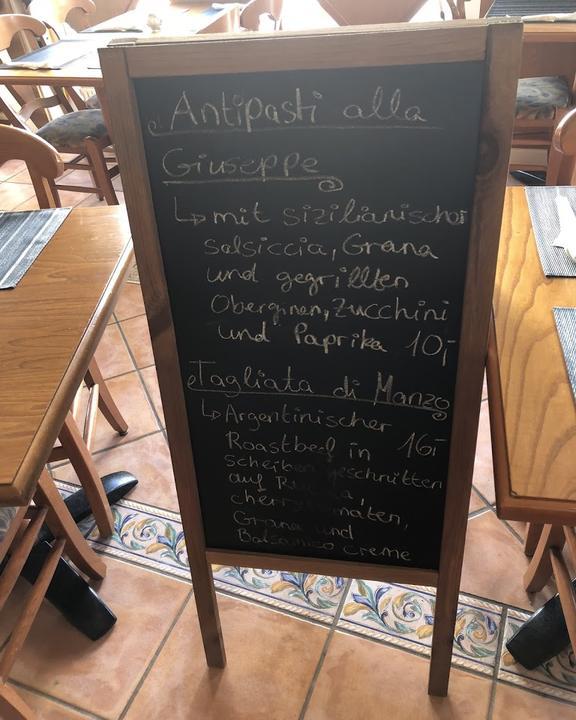 Antipasti alla
Giuseppe
↳ mit sizilianischer
salsiccia, Grana
und gegrillten
Oberginen, Zucchini
und Paprika 10,-
Tagliata di Manzo
↳ Argentinischer
Roastbeef in 16,-
scheiben geschnitten
auf
Grana und
Balsamico creme